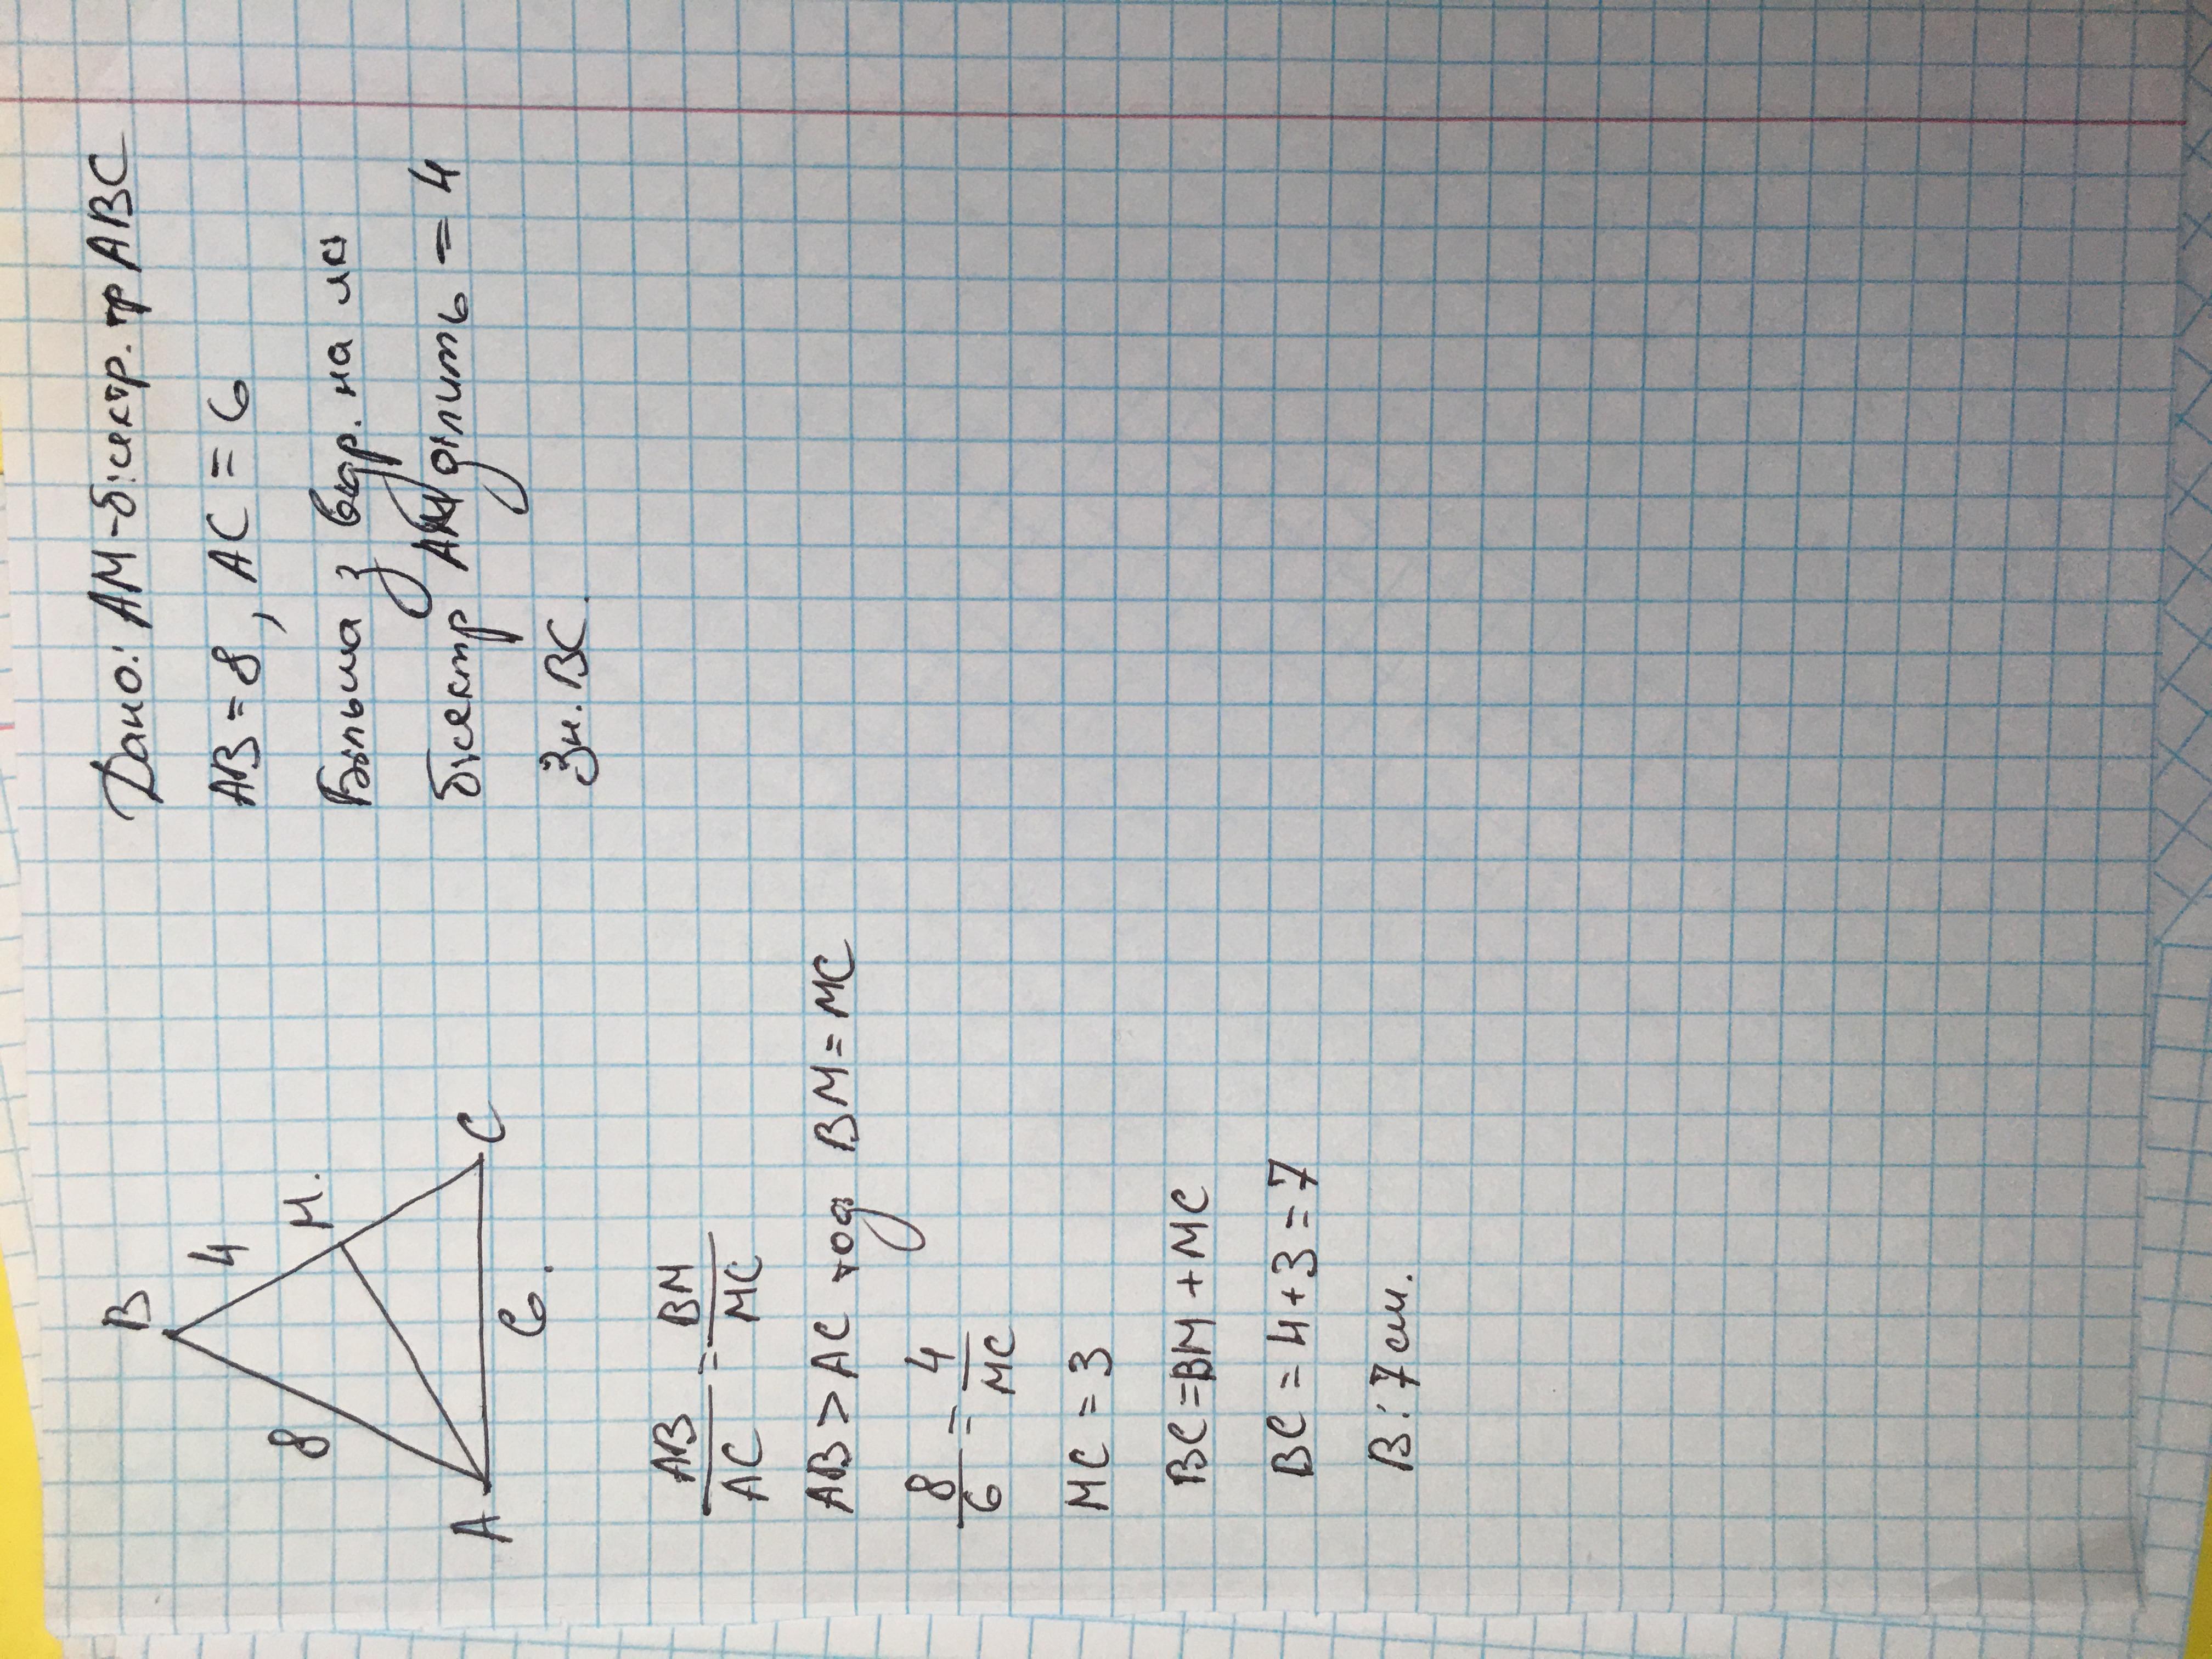 Дано: AM-бісектр. тр ABC
AB = 8, AC = 6
Більша з відр. на які
бісектр AM ділить = 4
Зн. BC.
B
4
M.
8
A
C
6.
AB/AC = BM/MC
AB > AC тоді BM = MC
8/6 = 4/MC
MC = 3
BC = BM + MC
BC = 4 + 3 = 7
В: 7 см.